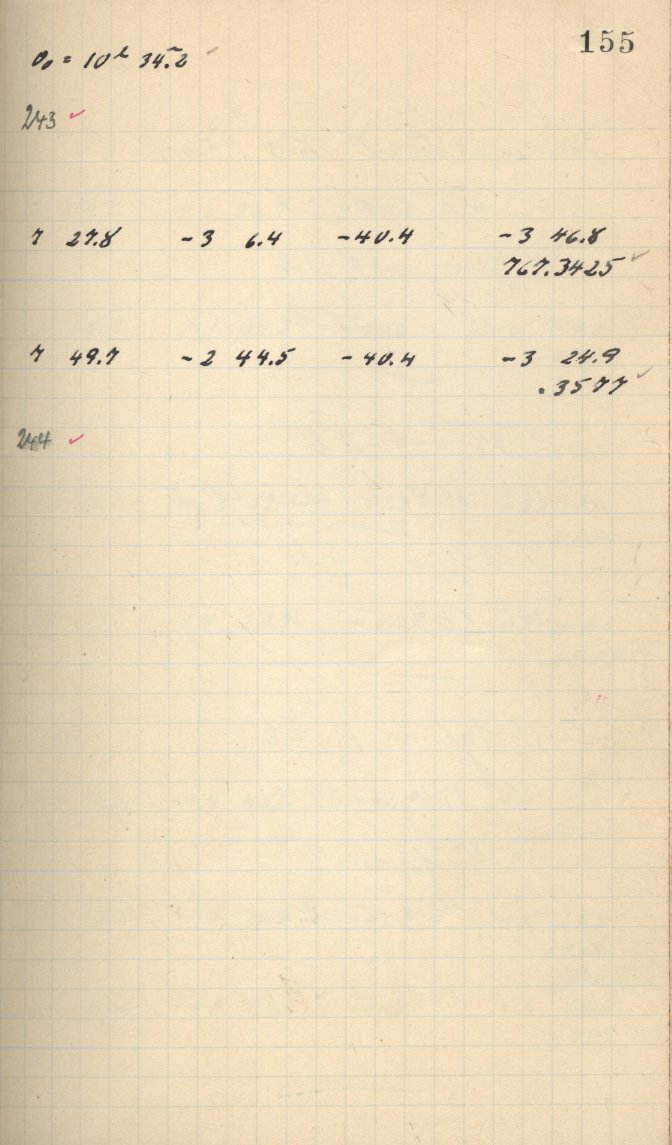 155
θ₀ = 10ʰ 34ᵐ.2 ✓
243 ✓
7 27.8 -3 6.4 -40.4 -3 46.8
767.3425 ✓
7 49.7 -2 44.5 -40.4 -3 24.9
.3577 ✓
244 ✓